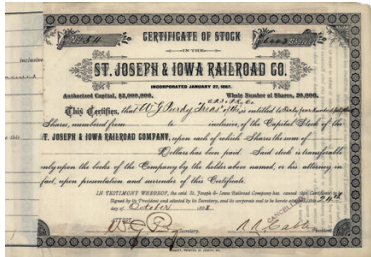 CERTIFICATE OF STOCK
IN THE
ST. JOSEPH & IOWA RAILROAD CO.
INCORPORATED JANUARY 27, 1887.
Authorized Capital, $2,000,000. Whole Number of Shares, 20,000.
This Certifies, that W. G. Purdy Treas. is entitled to
Shares, numbered from to inclusive, of the Capital Stock of the
ST. JOSEPH & IOWA RAILROAD COMPANY, upon each of which Shares the sum of
Dollars has been paid. Said stock is transferable
only upon the books of the Company by the holder above named, or his attorney in
fact, upon presentation and surrender of this Certificate.
IN TESTIMONY WHEREOF, the said St. Joseph & Iowa Railroad Company has caused this Certificate to be
Signed by its President and attested by its Secretary, and its corporate seal to be hereto attached, this 24th
day of October
Secretary.
CANCELLED
President.